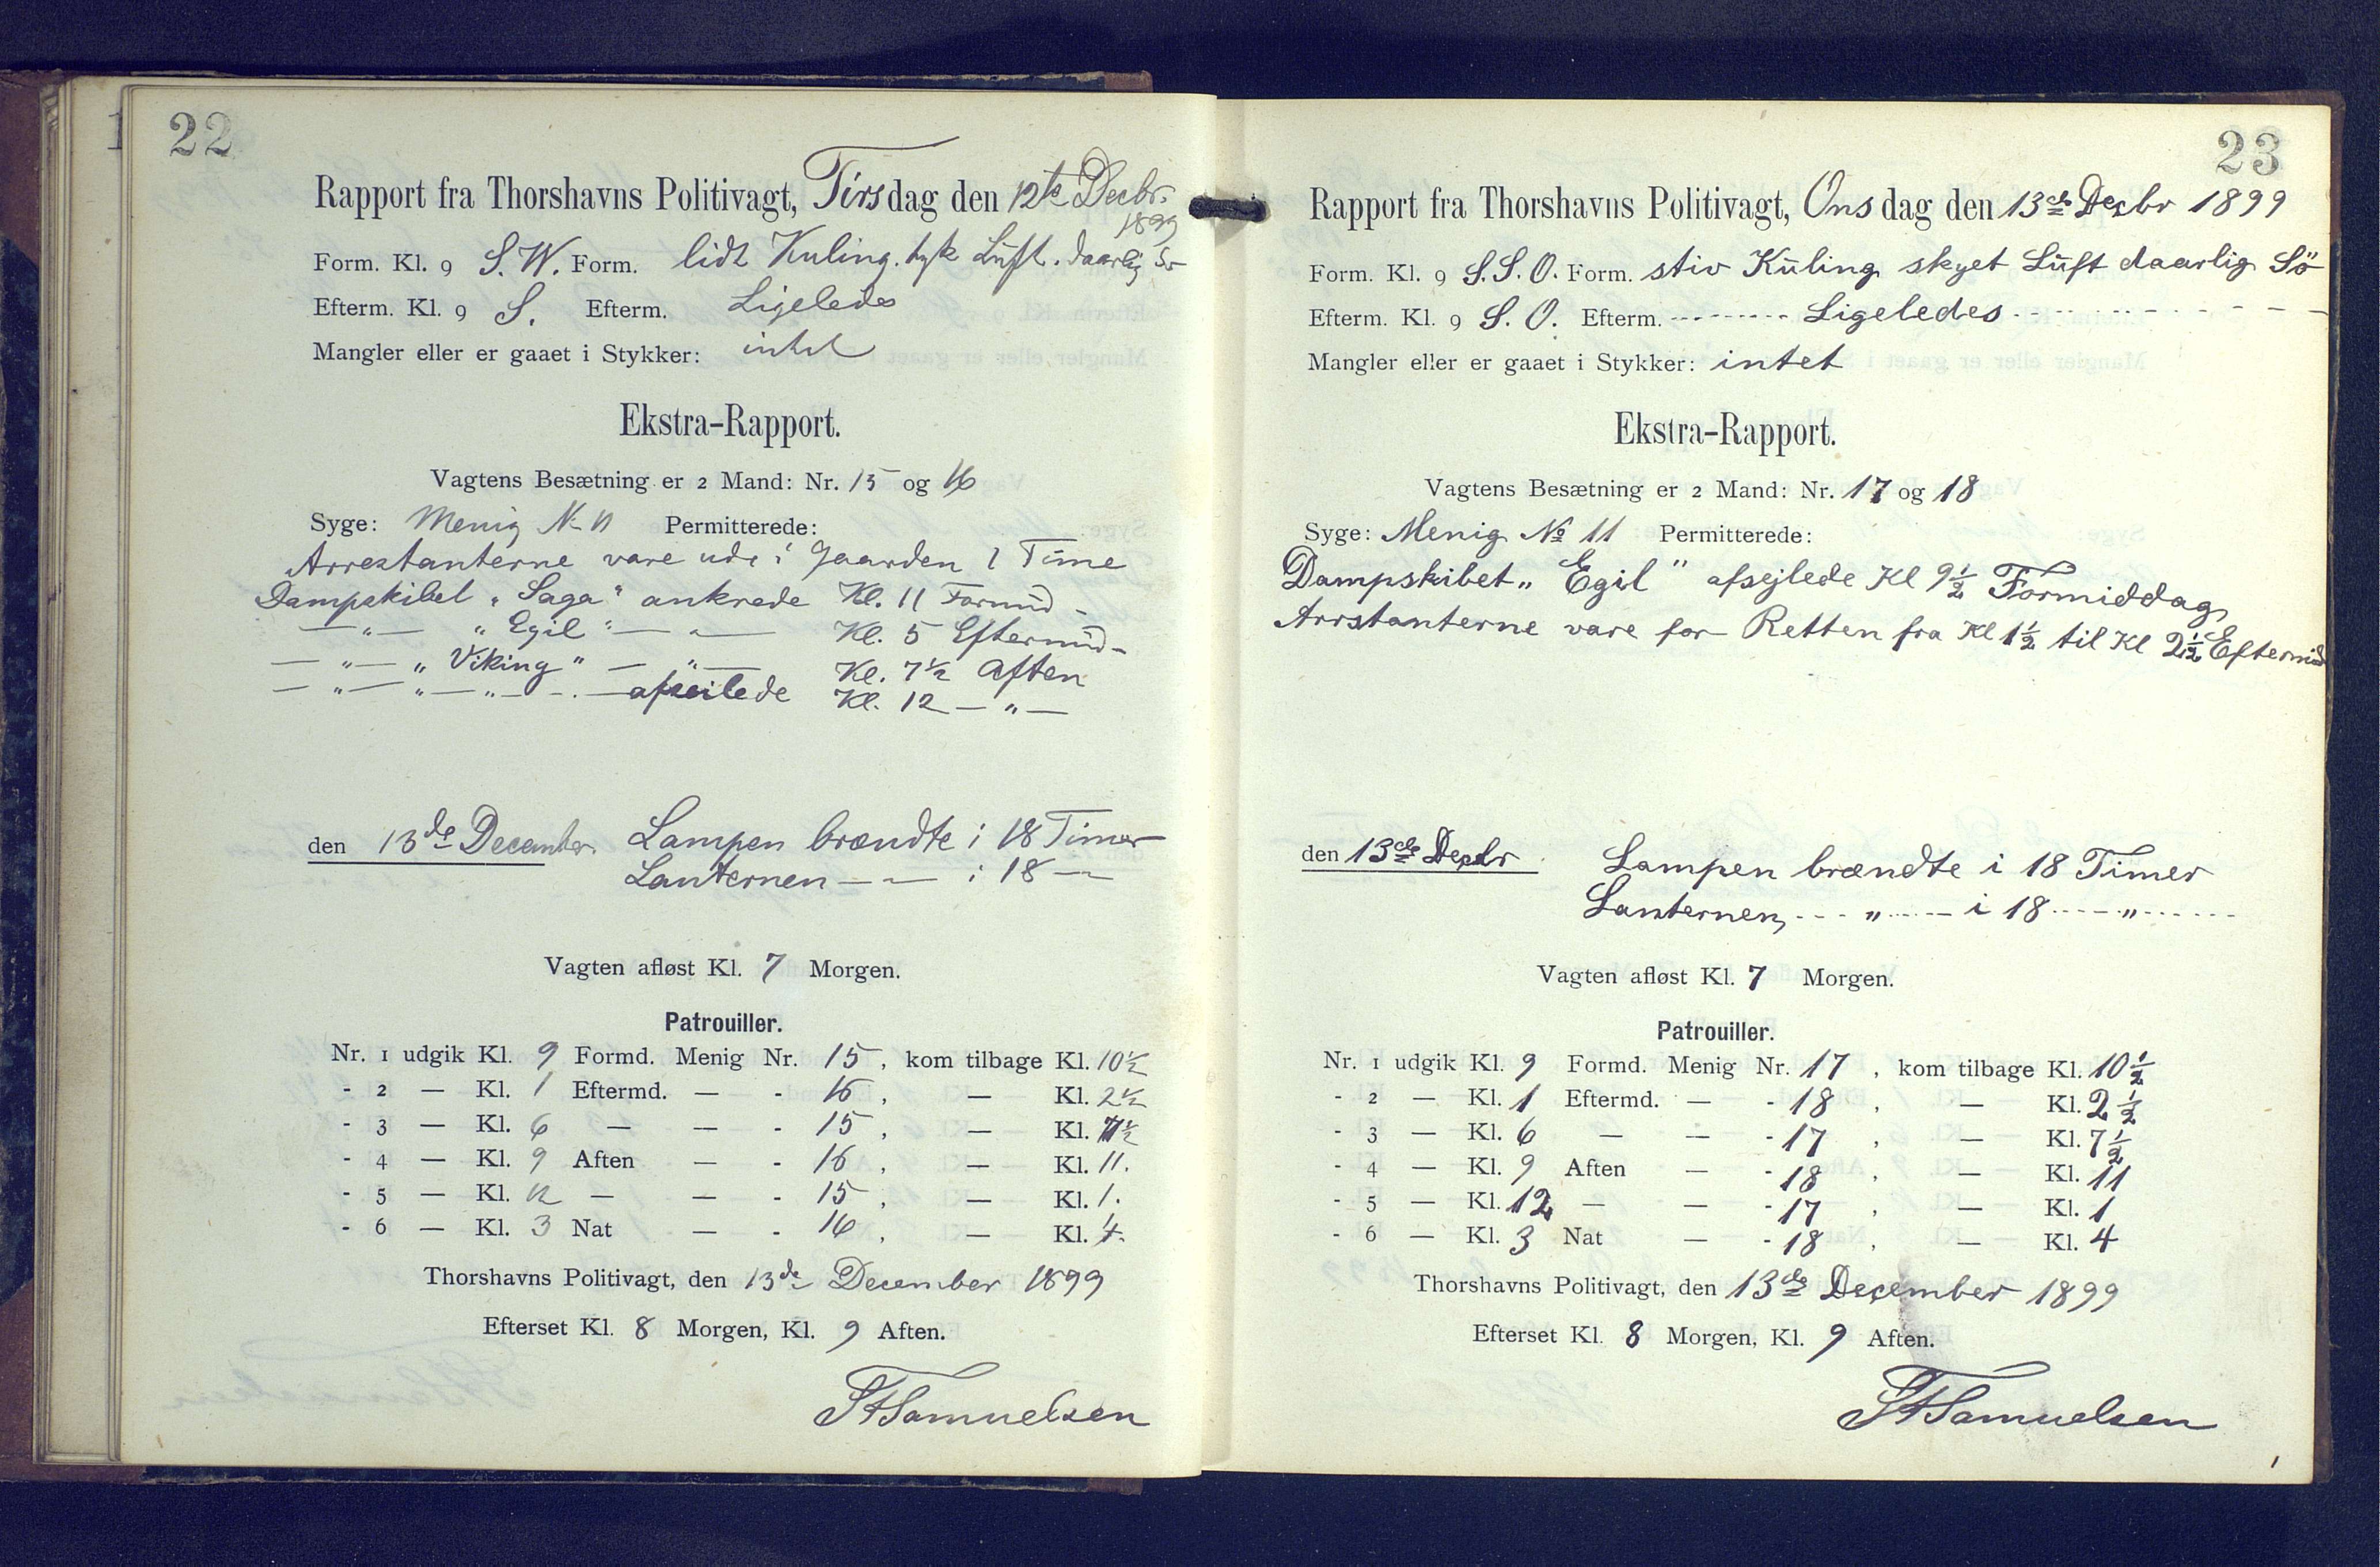 22
Rapport fra Thorshavns Politivagt, Tirsdag den 12te Decbr.
1899
Form. Kl. 9 S. W. Form. lidt Kuling. tyk Luft. daarlig Sö
Efterm. Kl. 9 S. Efterm. Ligeledes
Mangler eller er gaaet i Stykker: intet
Ekstra-Rapport.
Vagtens Besætning er 2 Mand: Nr. 15 og 16
Syge: Menig No 11 Permitterede:
Arrestanterne vare ude i Gaarden 1 Time
Dampskibet "Saga" ankrede Kl. 11 Formid-
—"— "Egil" — " — Kl. 5 Eftermid-
—"— "Viking" — " — Kl. 7½ Aften
—"— " — " — afseilede Kl. 12 —"—
den 13de December. Lampen brændte i 18 Timer
Lanternen — " — i 18 — " —
Vagten afløst Kl. 7 Morgen.
Patrouiller.
Nr. 1 udgik Kl. 9 Formd. Menig Nr. 15, kom tilbage Kl. 10½
- 2 — Kl. 1 Eftermd. — - 16, — Kl. 2½
- 3 — Kl. 6 — — - 15, — Kl. 7½
- 4 — Kl. 9 Aften — - 16, — Kl. 11.
- 5 — Kl. 12 — — - 15, — Kl. 1.
- 6 — Kl. 3 Nat — - 16, — Kl. 4.
Thorshavns Politivagt, den 13de December 1899
Efterset Kl. 8 Morgen, Kl. 9 Aften.
Samuelsen
23
Rapport fra Thorshavns Politivagt, Onsdag den 13de Decbr 1899
Form. Kl. 9 S. S. O. Form. stiv Kuling skyet Luft daarlig Sö
Efterm. Kl. 9 S. O. Efterm. --------- Ligeledes ---------
Mangler eller er gaaet i Stykker: intet
Ekstra-Rapport.
Vagtens Besætning er 2 Mand: Nr. 17 og 18
Syge: Menig No 11 Permitterede:
Dampskibet "Egil" afsejlede Kl 9½ Formiddag
Arrstanterne vare for Retten fra Kl 1½ til Kl 2½ Eftermid
den 13de Decbr Lampen brændte i 18 Timer
Lanternen, --- " ---- i 18 ---- " ------
Vagten afløst Kl. 7 Morgen.
Patrouiller.
Nr. 1 udgik Kl. 9 Formd. Menig Nr. 17, kom tilbage Kl. 10½
- 2 — Kl. 1 Eftermd. — - 18, — Kl. 2½
- 3 — Kl. 6 — — - 17, — Kl. 7½
- 4 — Kl. 9 Aften — - 18, — Kl. 11
- 5 — Kl. 12 — — - 17, — Kl. 1
- 6 — Kl. 3 Nat — - 18, — Kl. 4
Thorshavns Politivagt, den 13de December 1899
Efterset Kl. 8 Morgen, Kl. 9 Aften.
Samuelsen